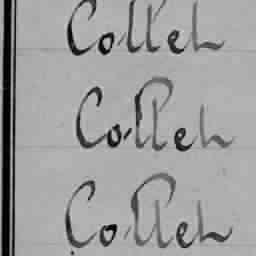 Colleh
Colleh
Colleh